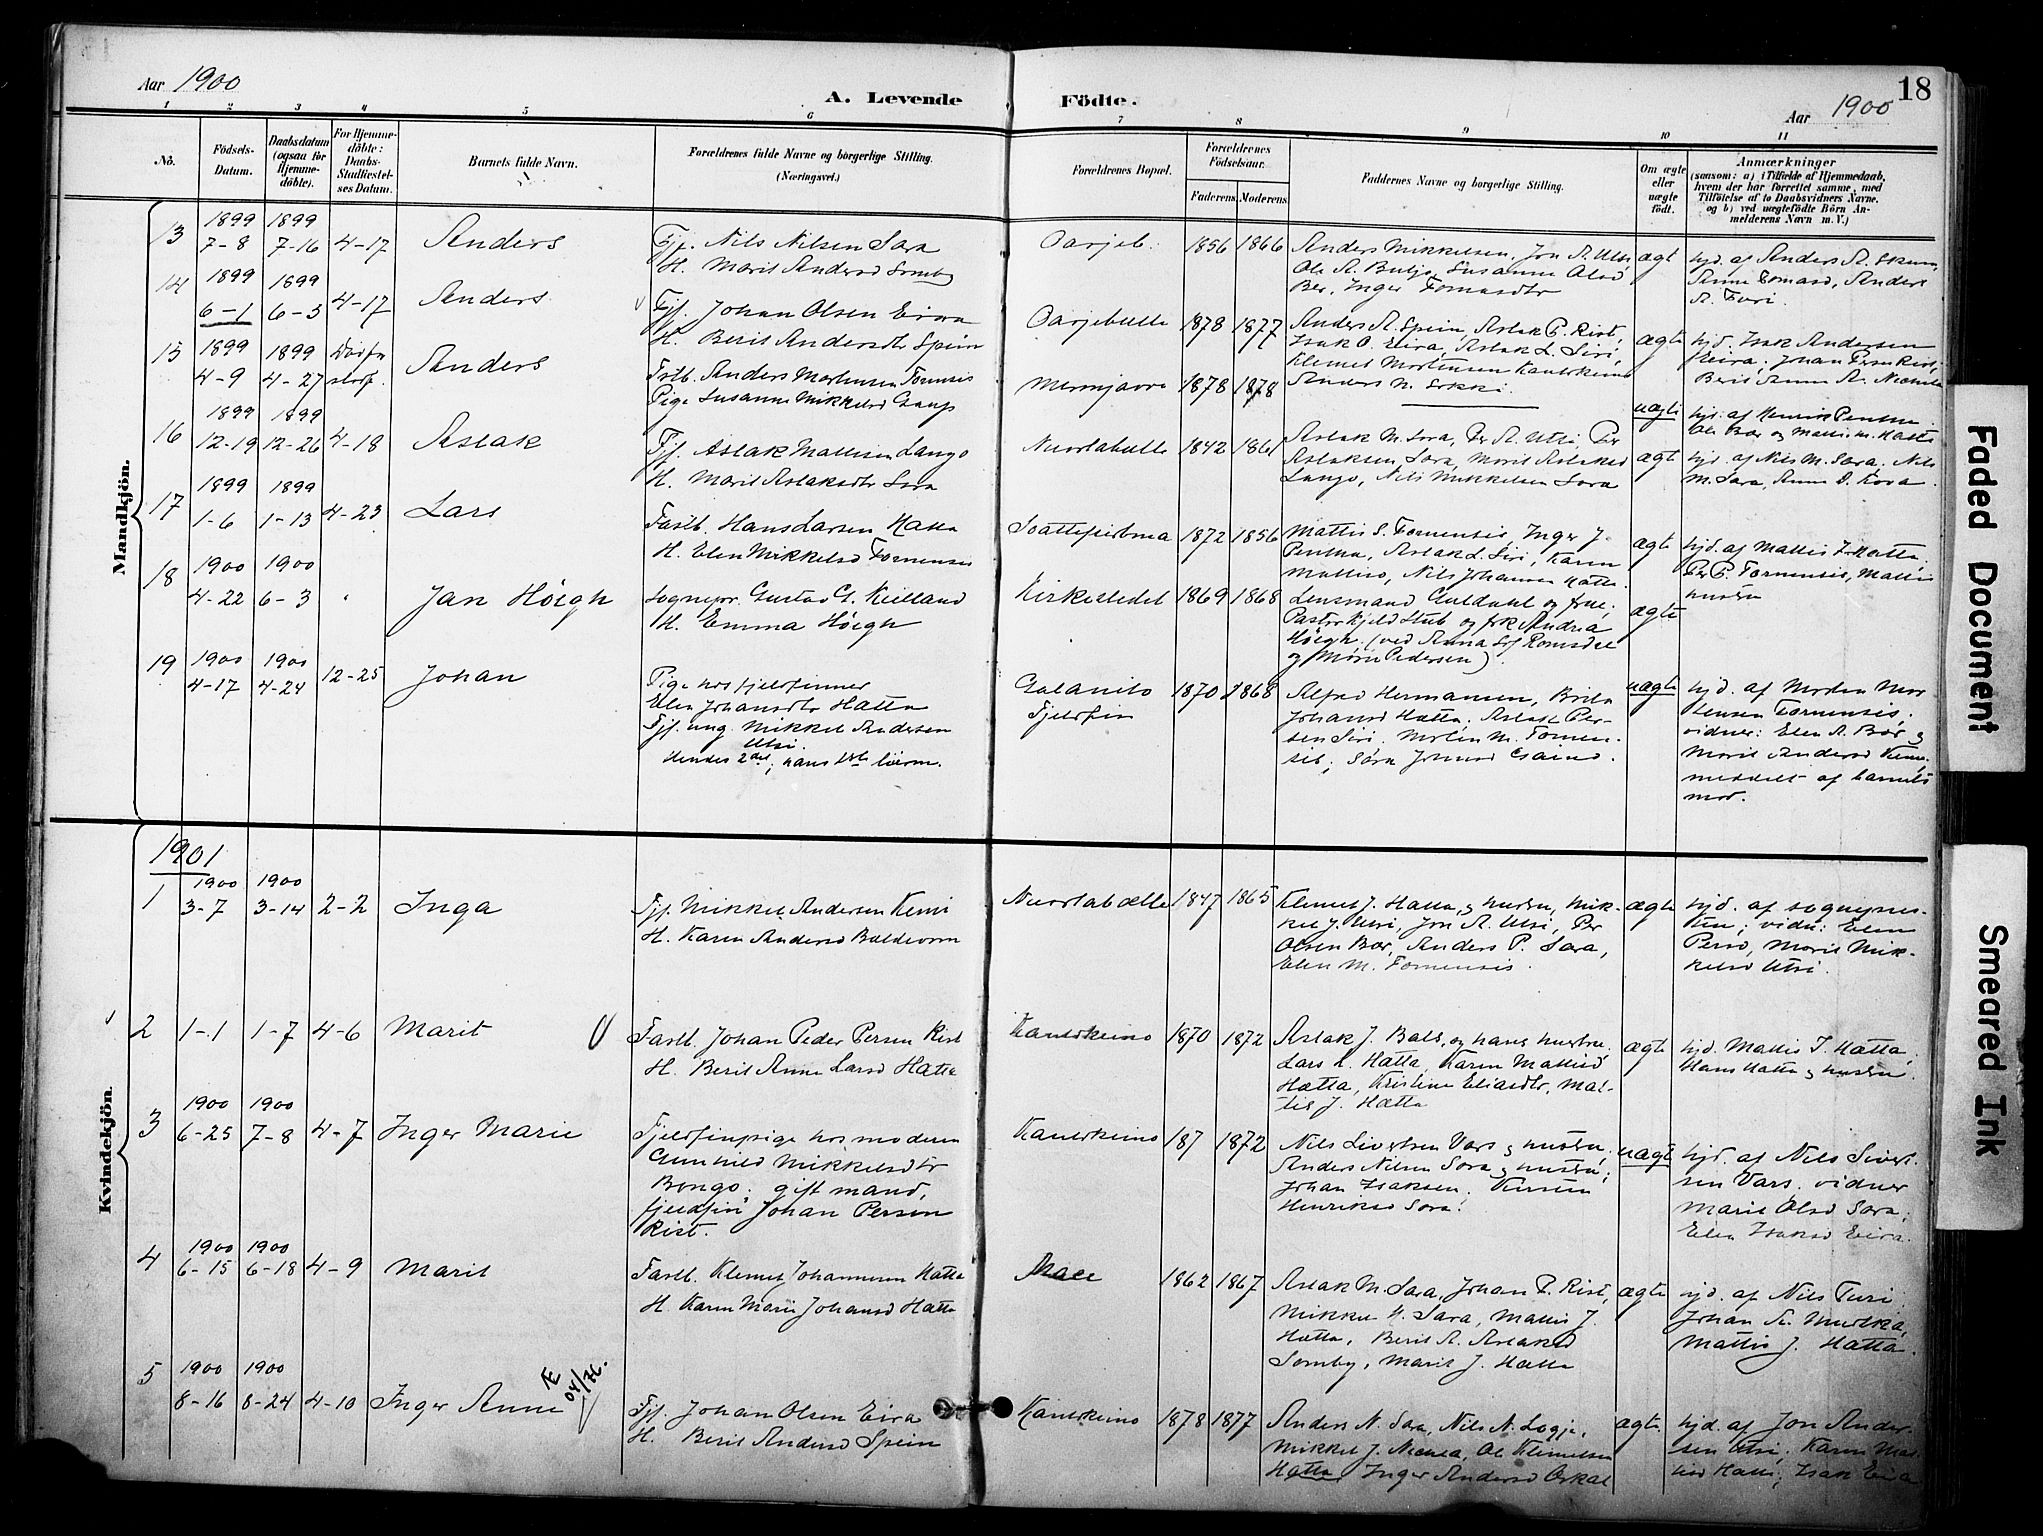 Aar 1900
A. Levende Födte.
18
Aar 1900
1 2 3 4 5 6 7 8 9 10 11
No.
Födsels-Datum.
Daabsdatum (ogsaa for Hjemmedöbte).
For Hjemmedöbte: Daabs-Stadfæstelses Datum.
Barnets fulde Navn.
Forældrenes fulde Navne og borgerlige Stilling. (Næringsvei.)
Forældrenes Bopæl.
Forældrenes Födselsaar.
Faderens. Moderens.
Faddernes Navne og borgerlige Stilling.
Om ægte eller uægte födt.
Anmærkninger
(saasom: a) i Tilfælde af Hjemmedaab, hvem der har forrettet samme, med Tilföielse af to Daabsvidners Navne, og b) ved uægtefödte Börn Anmelderens Navn m. V.)
Mandkjön.
13 1899 7-8 1899 7-16 4-17 Anders
Fjf. Nils Nilsen Sara
H. Marit Andersd Somby
Oarjeb. 1856 1866
Anders Mikkelsen, Jon A. Utsi
Ole A. Buljo, Susanne Olsd
Bær, Inger
ægt
hjd. af Anders A. Skum,
14 1899 6-1 1899 6-3 4-17 Anders
Fjf. Johan Olsen Eira
H. Berit Andersdtr Spein
Oarjebælle 1878 1877
Anders A. Spein, Aslak P. Rist,
Isak O. Eira, Aslak L. Siri,
Klemet Mortensen Kautokeino
Anders N. Lokki.
ægte
hjd. Isak Andersen
Eira, Johan Persen Rist,
15 1899 4-9 1899 4-27 Anders
Fstb. Anders Mortensen Fornæsis
Pige Susanne Mikkelsd Gaup
Mernjavre 1878 1878
uægte
16 1899 12-19 1899 12-26 4-18 Aslak
Fjf. Aslak Mattisen Lango
H. Marit Aslaksdtr Sara
Nuortabælle 1842 1861
Aslak M. Sara, Per A. Utsi, Per
Aslaksen Sara, Marit Aslaksd
Lango, Nils Mikkelsen Sara
ægt
hjd. af Nils M. Sara, Nils
M. Sara, Anne
17 1899 1-6 1899 1-13 4-23 Lars
Fastb. Hans Larsen Hætta
H. Elen Mikkelsd Fornensis
1872 1856
Mattis S. Fornensis, Inger J.
Pentha, Aslak L. Siri, Karen
Mattisd, Nils Johansen Hætta.
ægte
hjd. af Mattis I. Hætta,
Per P. Fornensis, Mattis
hustru
18 1900 4-22 1900 6-3 Jan Höegh
Sognepr. Gustav G. Kielland
H. Emma Höegh
Kirkestedet 1869 1868
Lensmand Guldahl og frue,
Pastor Kjeld Stub og frk Andrea
Höegh (ved Anna Sof Romsdal
og Marie Pedersen).
ægte
19 1900 4-17 1900 4-24 12-25 Johan
Pige hos fjeldfinner
Elen Johansdtr Hætta
Fjf. ung. Mikkel Andersen
Utsi.
Hendes 2det, hans 1ste barn.
Galanito
Fjeldfin
1870 1868
Alfred Hermansen, Brita
Johansd Hætta, Aslak Per-
sen Siri, Morten M. Fornen-
sis, Sara
uægte
hjd. af Morten Mor-
tensen Fornensis,
vidner: Elen A. Bær og
Marit Andersd Kemi,
meddelt af barnets
mor.
Kvindekjön.
1901
1 1900 3-7 1900 3-14 2-2 Inga
Fjf. Mikkel Andersen Kemi
H. Karen Andersd Baldevorn
Nuortabælle 1847 1865
Klemet J. Hætta og hustru, Mik-
kel J. Utsi, Jon A. Utsi, Per
Olsen Bær, Anders P. Sara,
Elen M. Fornensis.
ægte
hjd. af sognepres-
ten; vidn: Elen
Persd, Marit Mik-
kelsd Utsi.
2 1-1 1-7 4-6 Marit
Fastb. Johan Peder Persen Rist
H. Berit Anne Larsd Hætta
Kautokeino 1870 1872
Aslak J. Bals, og hans hustru,
Lars L. Hætta, Karen Mattisd
Hætta, Kristine Eliasdtr, Mat-
tis J. Hætta
ægte
hjd. Mattis I. Hætta,
Hans Hætta og hustru.
3 1900 6-25 1900 7-8 4-7 Inger Marie
Fjeldfinpige hos moderen
Gunhild Mikkelsdtr
Bongo; gift mand,
fjeldfin Johan Persen
Rist.
Kautokeino 187 1872
Nils Sivertsen Vars og hustru,
Anders Nilsen Sara og hustru,
Johan Isaksen, Kirsten
Henriksd Sara.
uægte
hjd. af Nils Sivert-
sen Vars. vidner
Marit Olsd Sara,
Elen Isaksd Eira.
4 1900 6-15 1900 6-18 4-9 Marit
Fastb. Klemet Johannesen Hætta
H. Karen Marie Johansd Hætta
Maci 1862 1867
Aslak M. Sara, Johan P. Rist,
Mikkel H. Sara, Mattis J.
Hætta, Berit A. Aslaksd
Somby, Marit J. Hætta
ægte
hjd. af Nils Turi
Johan A.
Mattis J. Hætta.
5 1900 8-16 1900 8-24 4-10 Inger Anne
Fjf. Johan Olsen Eira
H. Berit Andersd Spein
Kautokeino 1878 1877
Anders N. Sara, Nils N. Logje,
Mikkel J. Næckel, Ole Klemetsen
Hætta, Inger Andersd Oskal
ægte.
hjd. af Jon Ander-
sen Utsi, Karen Mat-
tisd Hætta, Isak Eira
Faded Document
Smeared Ink